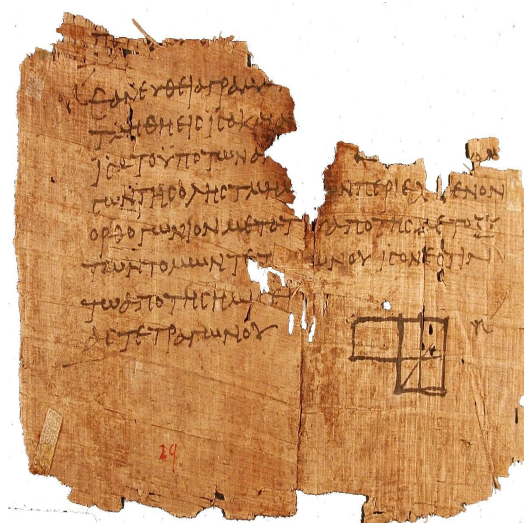 ΕΑΝ ΕΥΘΕΙΑ ΓΡΑΜΜ
ΤΜΗΘΗ ΕΙϹ ΙϹΑ ΚΑΙ Α
ΙϹΑ ΤΟ ΥΠΟ ΤΩΝ Α
ϹΩΝ ΤΗϹ ΟΛΗϹ ΤΜΗΜ ΩΝ ΠΕΡΙΕΧ ΜΕΝΟΝ
ΟΡΘΟΓΩΝΙΟΝ ΜΕΤΑ ΤΟΥ ΑΠΟ ΤΗϹ ΜΕΤΟΞΥ
ΤΩΝ ΤΟΜΩΝ ΤΕΤ ΩΝΟΥ ΙϹΟΝ ΕϹΤΙΝ
ΤΩ ΑΠΟ ΤΗϹ ΗΜΙϹΕΙ
ΑϹ ΤΕΤΡΑΓΩΝΟΥ
29